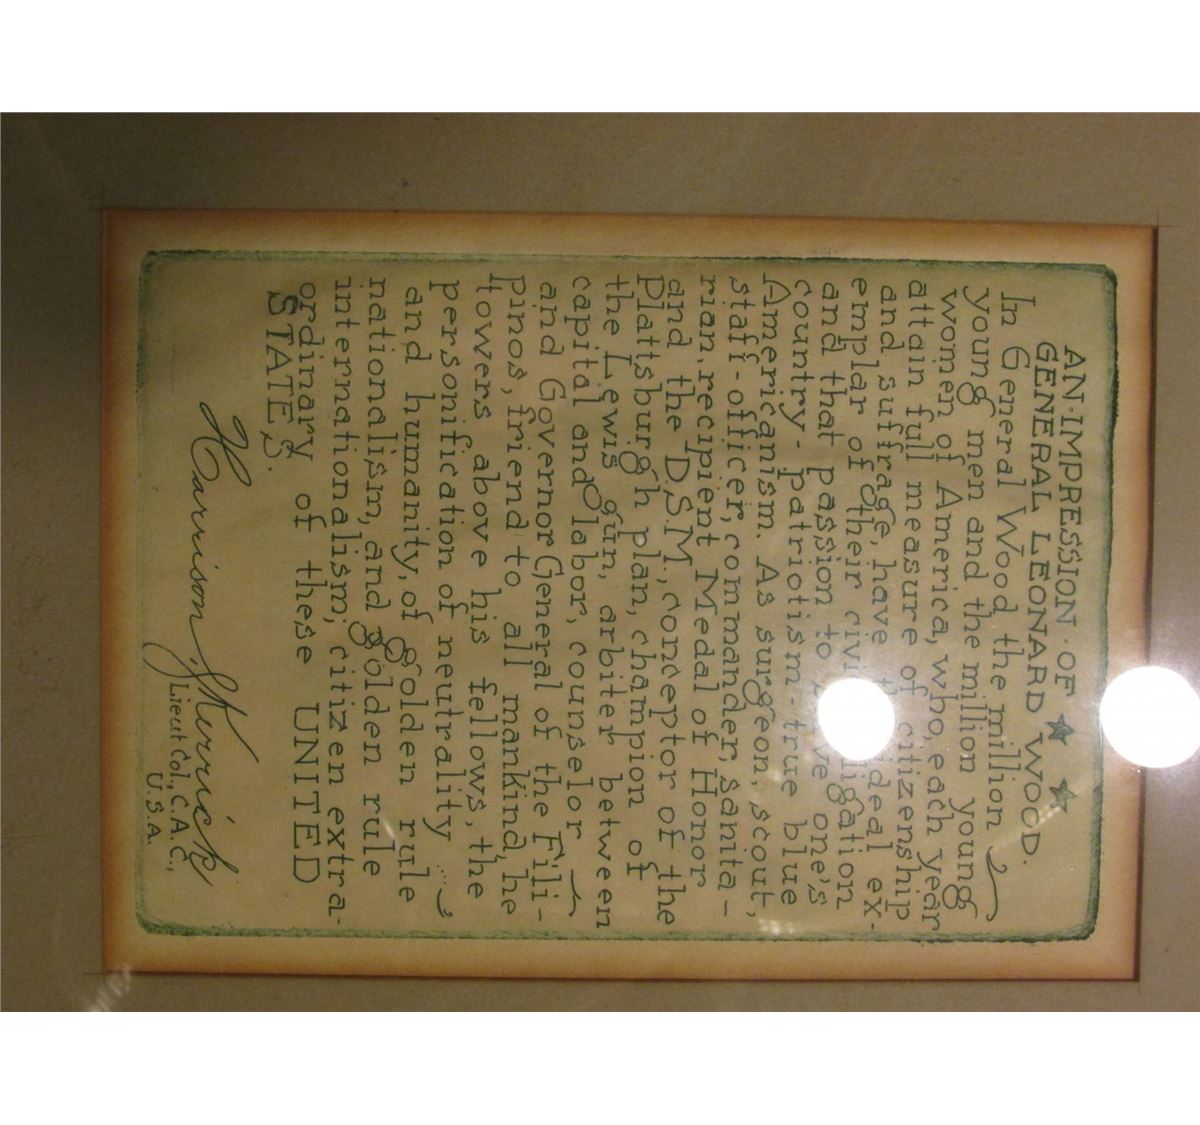 AN·IMPRESSION·OF ★ ★
GENERAL LEONARD WOOD.
In General Wood the million
young men and the million young
women of America, who, each year
attain full measure of citizenship
and suffrage, have ideal ex-
emplar of their
and that passion to one's
country-patriotism-true blue
Americanism. As surgeon, scout,
staff-officer, commander, sanita-
rian, recipient Medal of Honor
and the D.S.M., conceptor of the
Plattsburgh plan, champion of
the Lewis gun, arbiter between
capital and labor, counselor
and Governor General of the Fili-
pinos, friend to all mankind, he
towers above his fellows, the
personification of neutrality
and humanity, of golden rule
nationalism, and golden rule
internationalism; citizen extra-
ordinary of these UNITED
STATES.
Harrison S. Kerrick
Lieut Col., C.A.C.,
U.S.A.